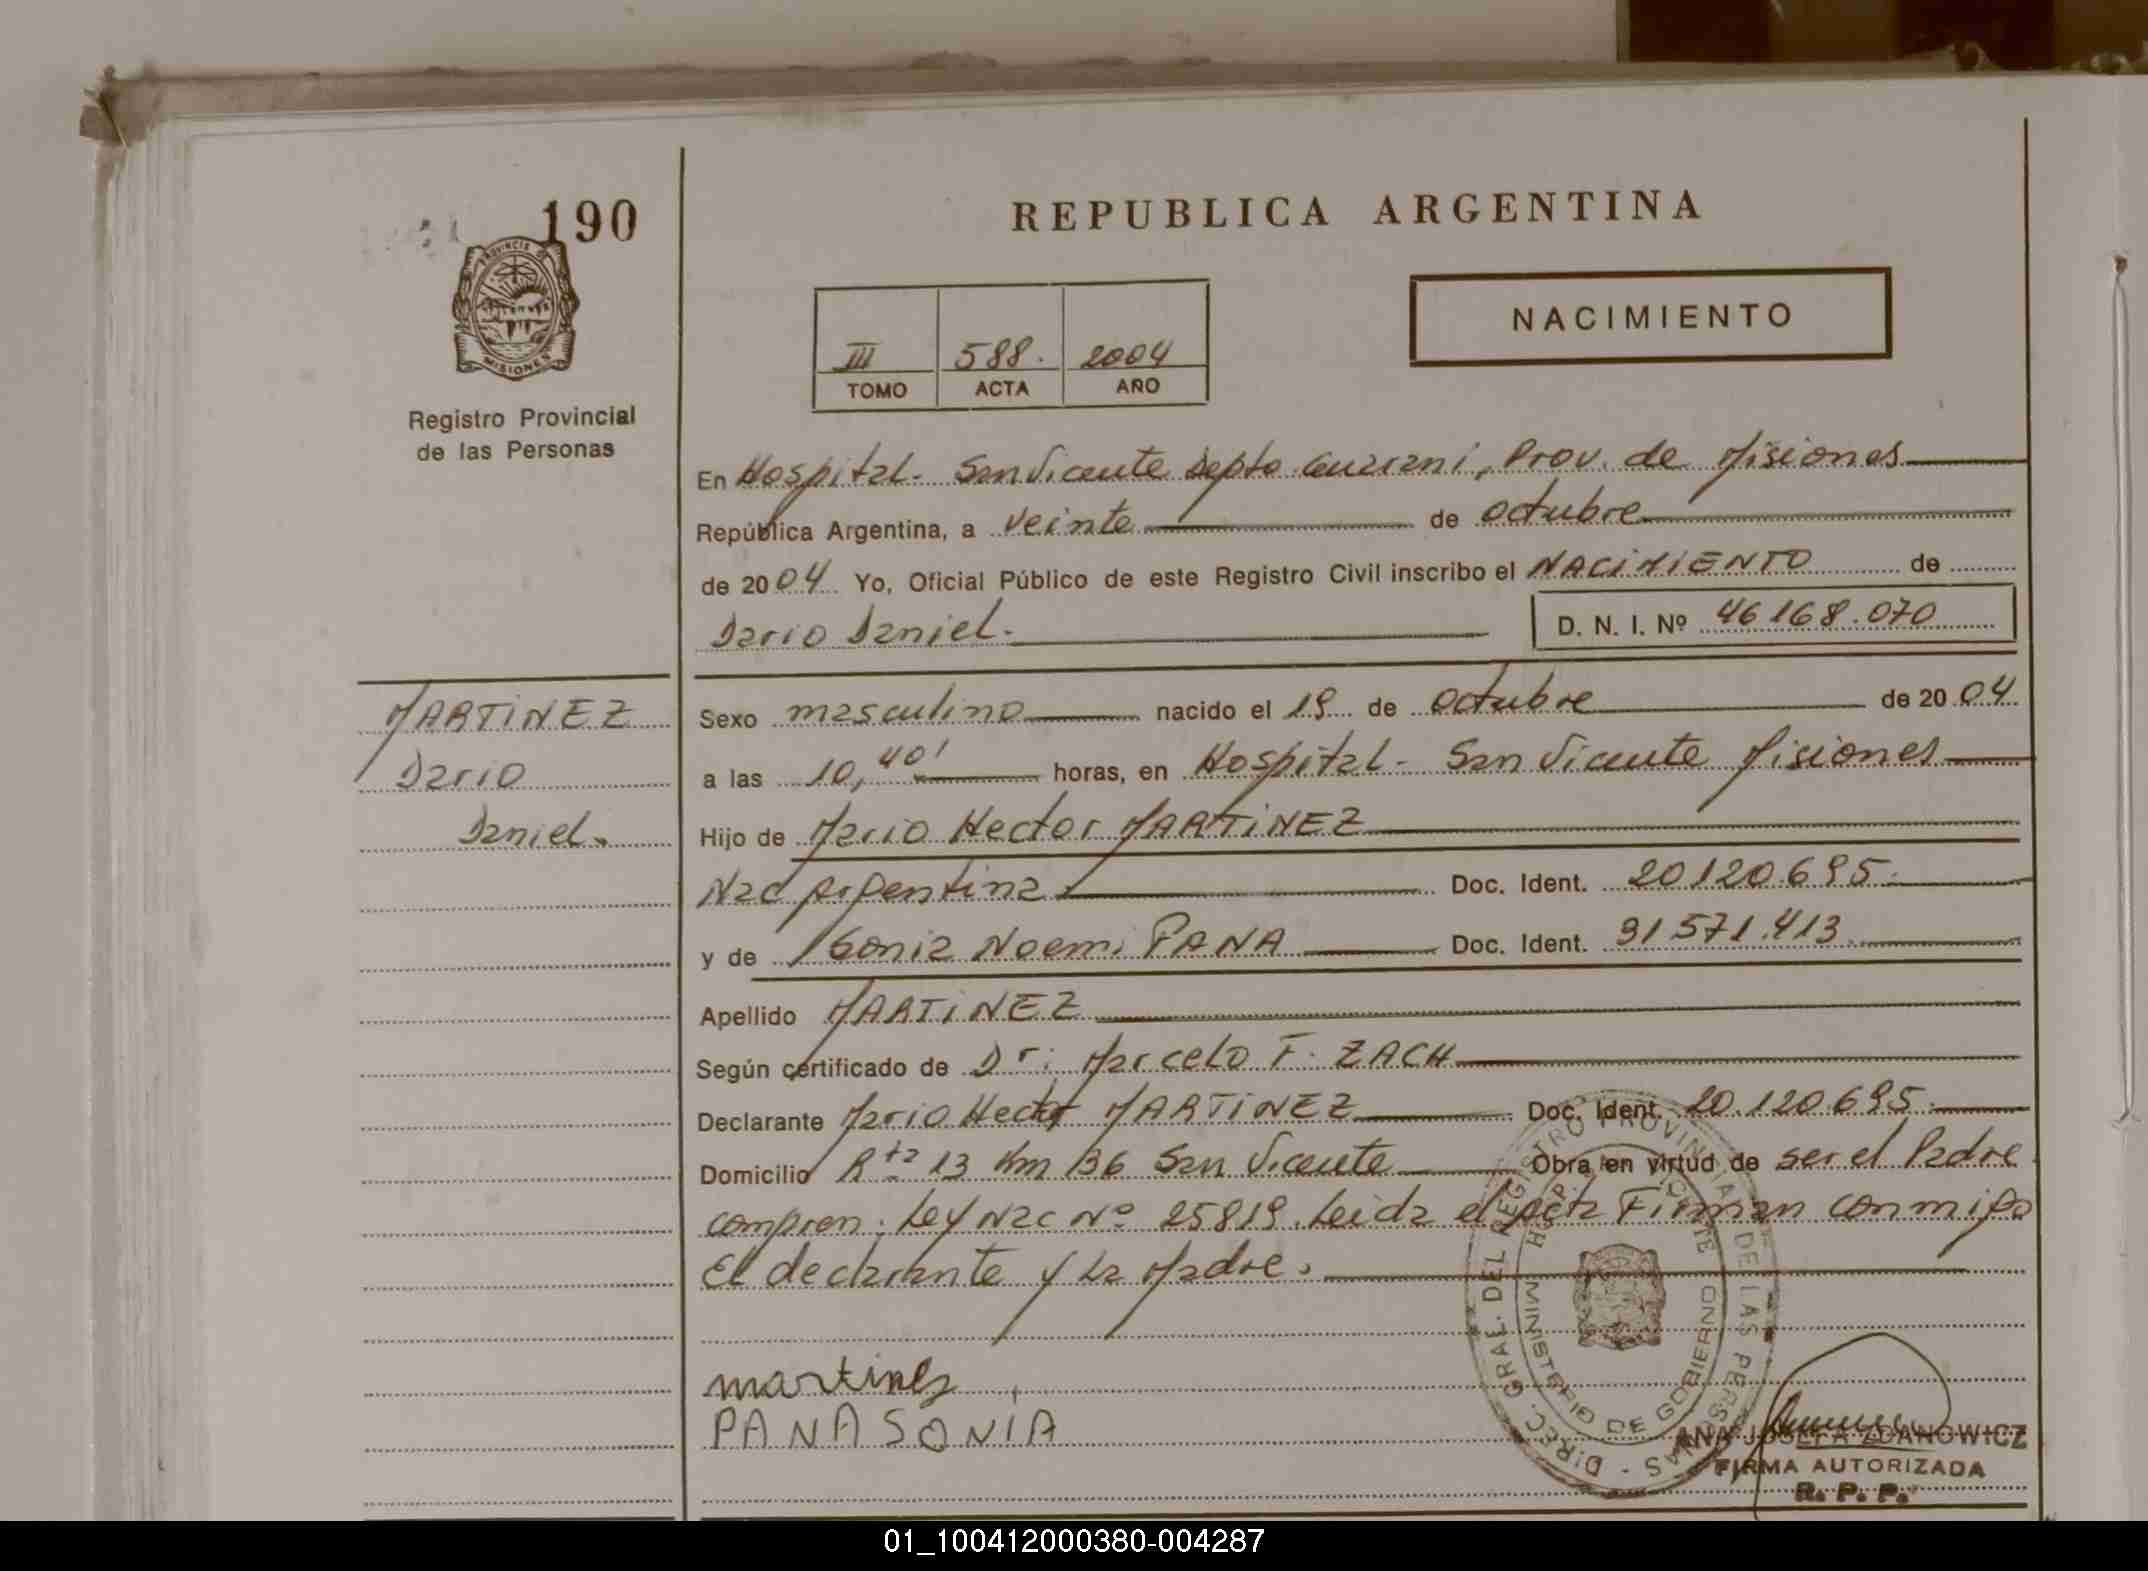 190
PROVINCIA DE
MISIONES
Registro Provincial
de las Personas
MARTINEZ
Dario
Daniel.
REPUBLICA ARGENTINA
III 588. 2004
TOMO ACTA AÑO
NACIMIENTO
En Hospital- San Vicente Depto Guarani, Prov. de Misiones
República Argentina, a veinte de octubre
de 2004 Yo, Oficial Público de este Registro Civil inscribo el NACIMIENTO de
Dario Daniel.
D. N. I. Nº 46168.070
Sexo masculino nacido el 19 de octubre de 2004
a las 10,40' horas, en Hospital- San Vicente Misiones
Hijo de Mario Hector MARTINEZ
Nac Argentina Doc. Ident. 20120695.
y de Sonia Noemi PANA Doc. Ident. 31571.413
Apellido MARTINEZ
Según certificado de Dr: Marcelo F. ZACH
Declarante Mario Hector MARTINEZ Doc. Ident. 20120695.
Domicilio Rta 13 Km 136 San Vicente Obra en virtud de ser el Padre
compren. Ley Nac Nº 25819. Leida el acta Firman conmigo
El declarante y La Madre.
martines
PANA SONIA
DIREC. GRAL. DEL REGISTRO PROVINCIAL DE LAS PERSONAS
MINISTERIO DE GOBIERNO
ANA JOSEFA ZDANOWICZ
FIRMA AUTORIZADA
R. P. P.
01_100412000380-004287